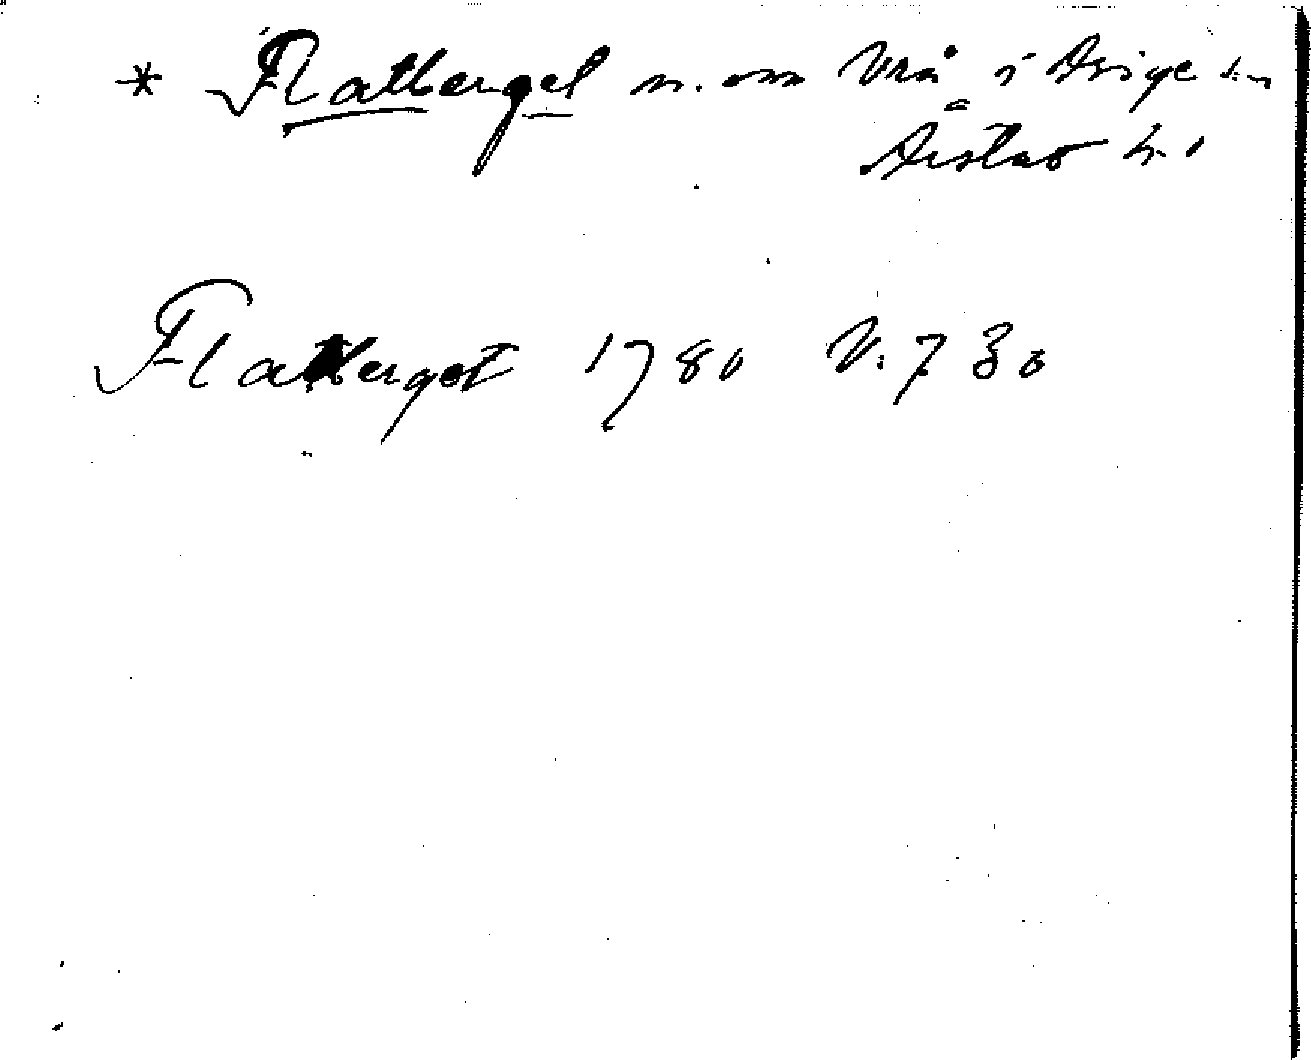 * Flatberget n. om Vrå i Asige sn
Årstad h.
Flatberget 1780 V. 7 30